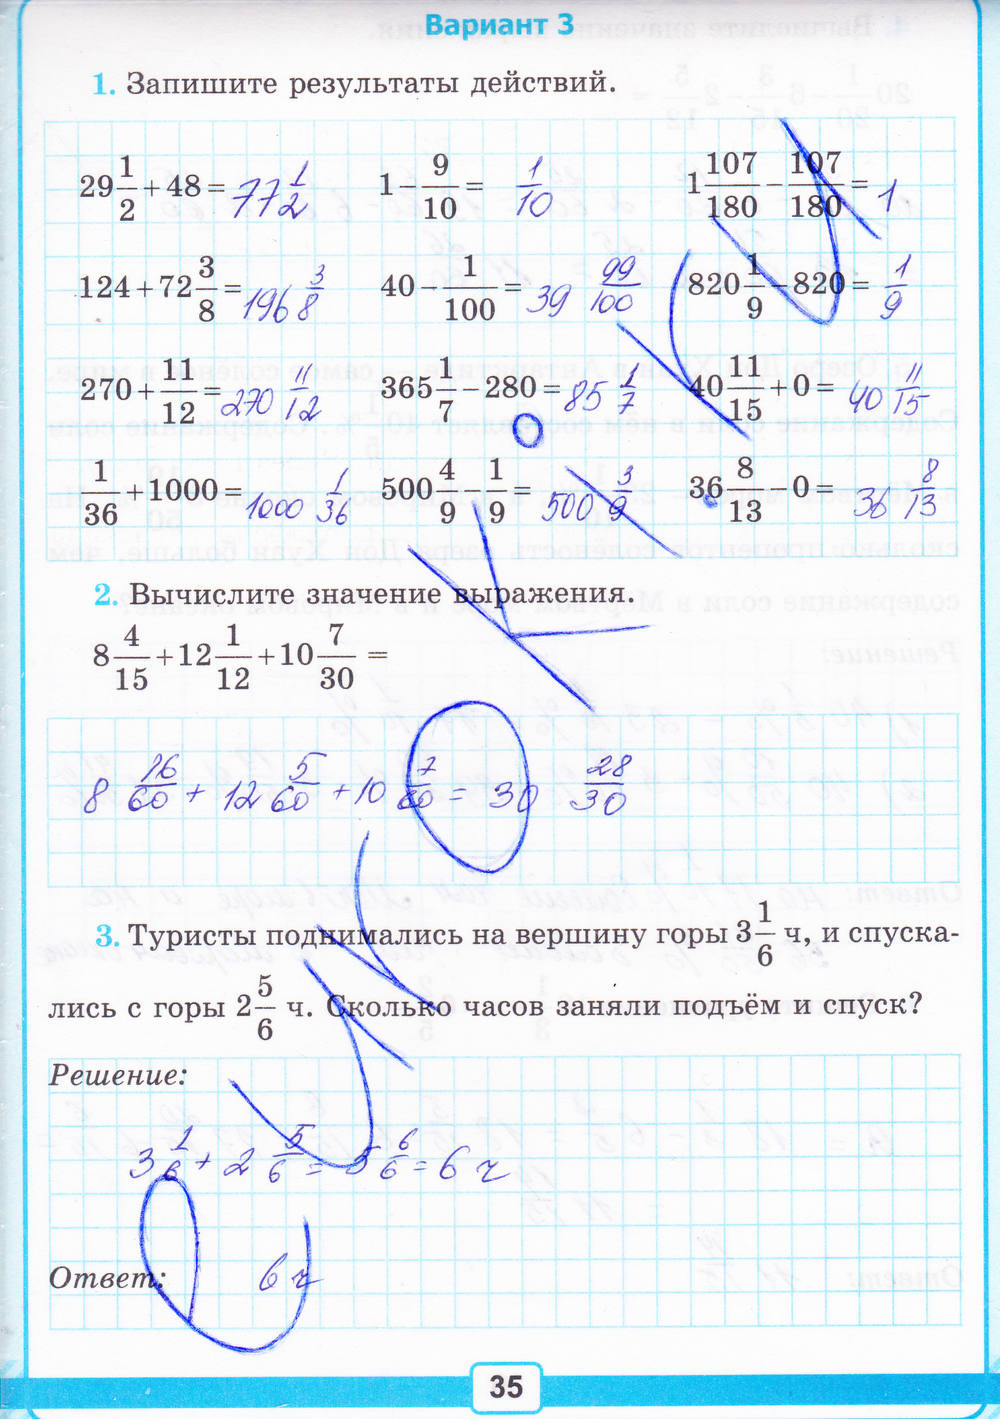 Вариант 3
1. Запишите результаты действий.
29 1/2 + 48 = 77 1/2   1 − 9/10 = 1/10   1 107/180 − 107/180 = 1
124 + 72 3/8 = 196 3/8   40 − 1/100 = 39 99/100   820 1/9 − 820 = 1/9
270 + 11/12 = 270 11/12   365 1/7 − 280 = 85 1/7   40 11/15 + 0 = 40 11/15
1/36 + 1000 = 1000 1/36   500 4/9 − 1/9 = 500 3/9   36 8/13 − 0 = 36 8/13
2. Вычислите значение выражения.
8 4/15 + 12 1/12 + 10 7/30 =
8 16/60 + 12 5/60 + 10 7/60 = 30 28/30
3. Туристы поднимались на вершину горы 3 1/6 ч, и спуска-
лись с горы 2 5/6 ч. Сколько часов заняли подъём и спуск?
Решение:
3 1/6 + 2 5/6 = 5 6/6 = 6 ч
Ответ: 6 ч
35